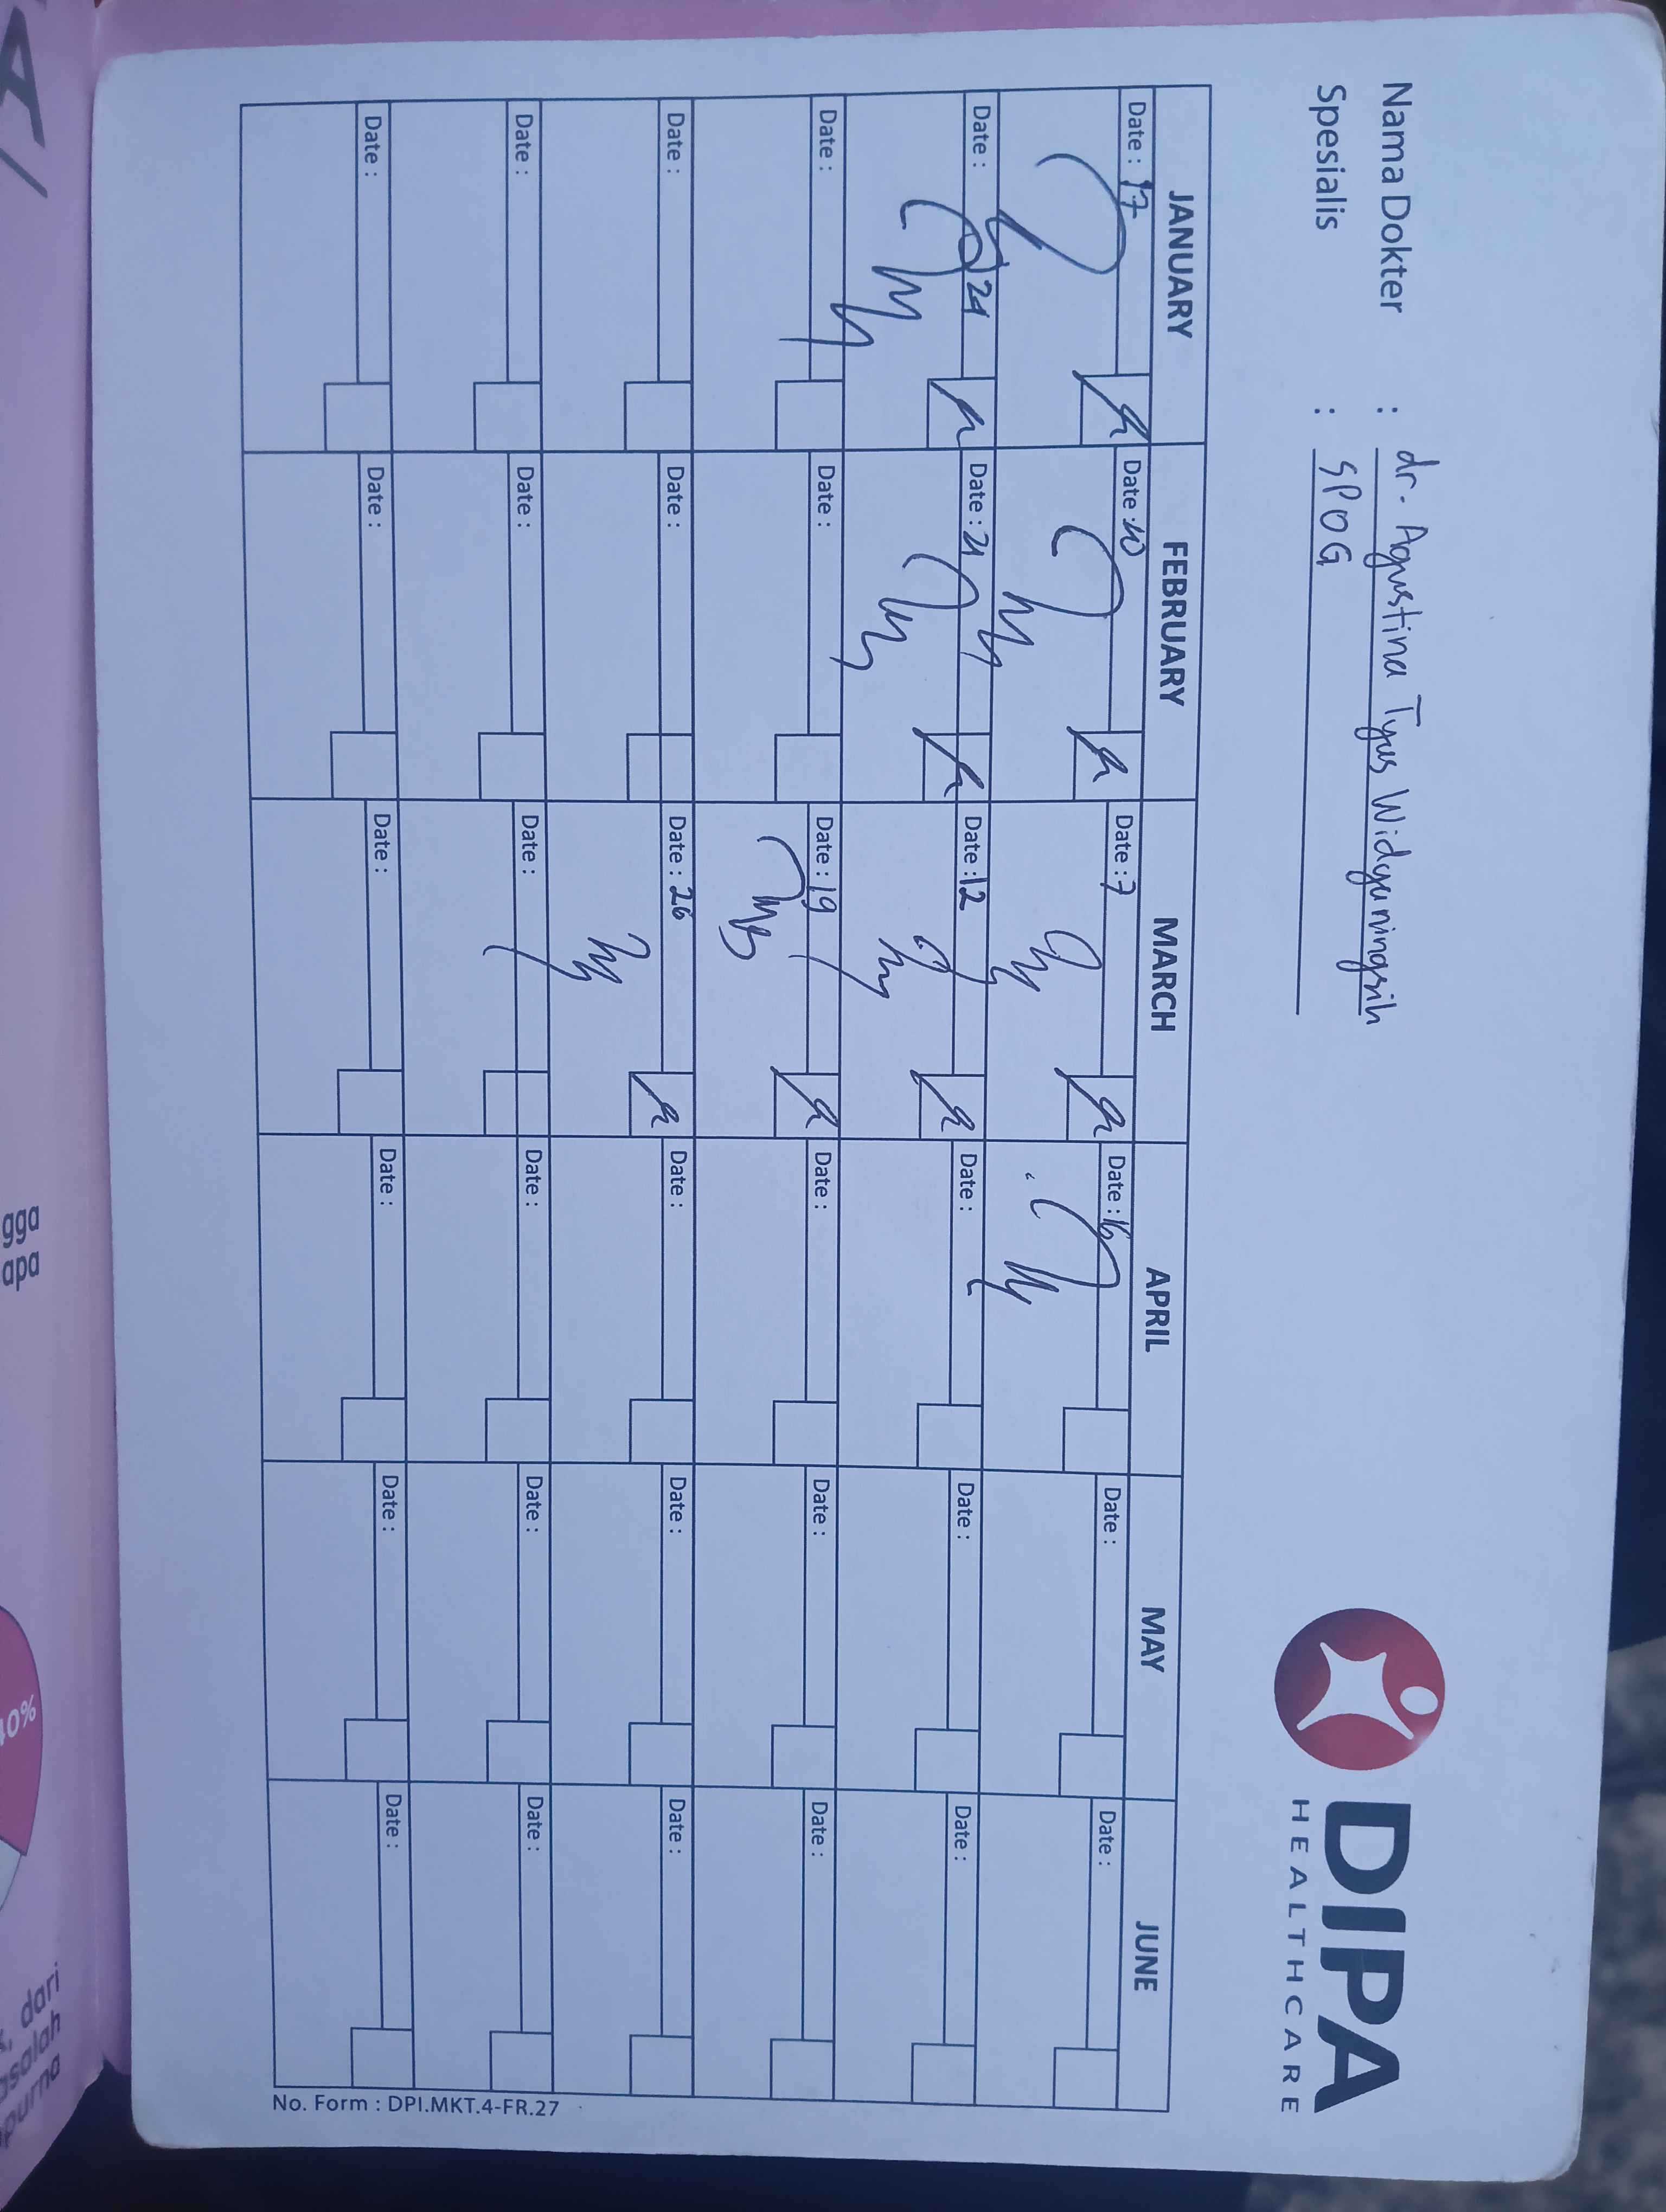 Nama Dokter : dr. Agustina Tyas Widyaningsih
Spesialis : SPOG
DIPA
HEALTHCARE
JANUARY FEBRUARY MARCH APRIL MAY JUNE
Date : 17 Date : 10 Date : 7 Date : 16 Date : Date :
Date : 24 Date : 21 Date : 12 Date : Date : Date :
Date : Date : Date : 19 Date : Date : Date :
Date : Date : Date : 26 Date : Date : Date :
Date : Date : Date : Date : Date : Date :
Date : Date : Date : Date : Date : Date :
No. Form : DPI.MKT.4-FR.27
gga
apa
40%
dari